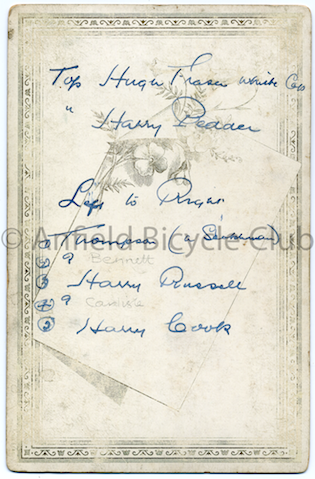 Top Hugh Fraser White Cap
" Harry Pedder
Left to Right
© Arnold Bicycle Club
① Thompson (a
② ? Bennett
③ Harry Russell
④ ? Carlisle
⑤ Harry Cook